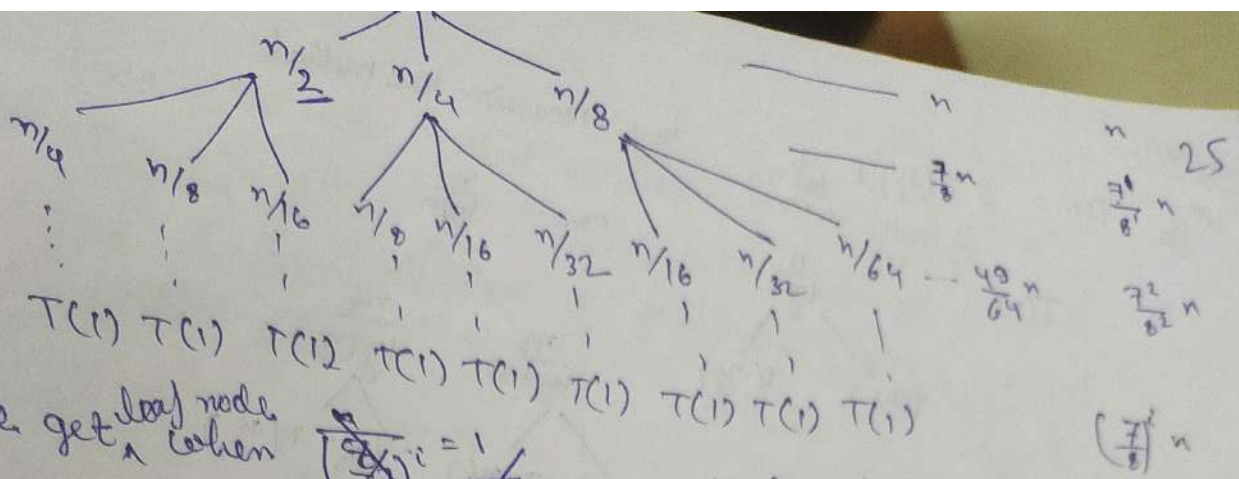 n/2 n/4 n/8 n n 25
n/4 n/8 n/16 n/8 n/16 n/32 n/16 n/32 n/64 7/8 n 7^1/8^1 n
49/64 n 7^2/8^2 n
T(1) T(1) T(1) T(1) T(1) T(1) T(1) T(1) T(1)
get leaf node when = 1 (7/8)^i n